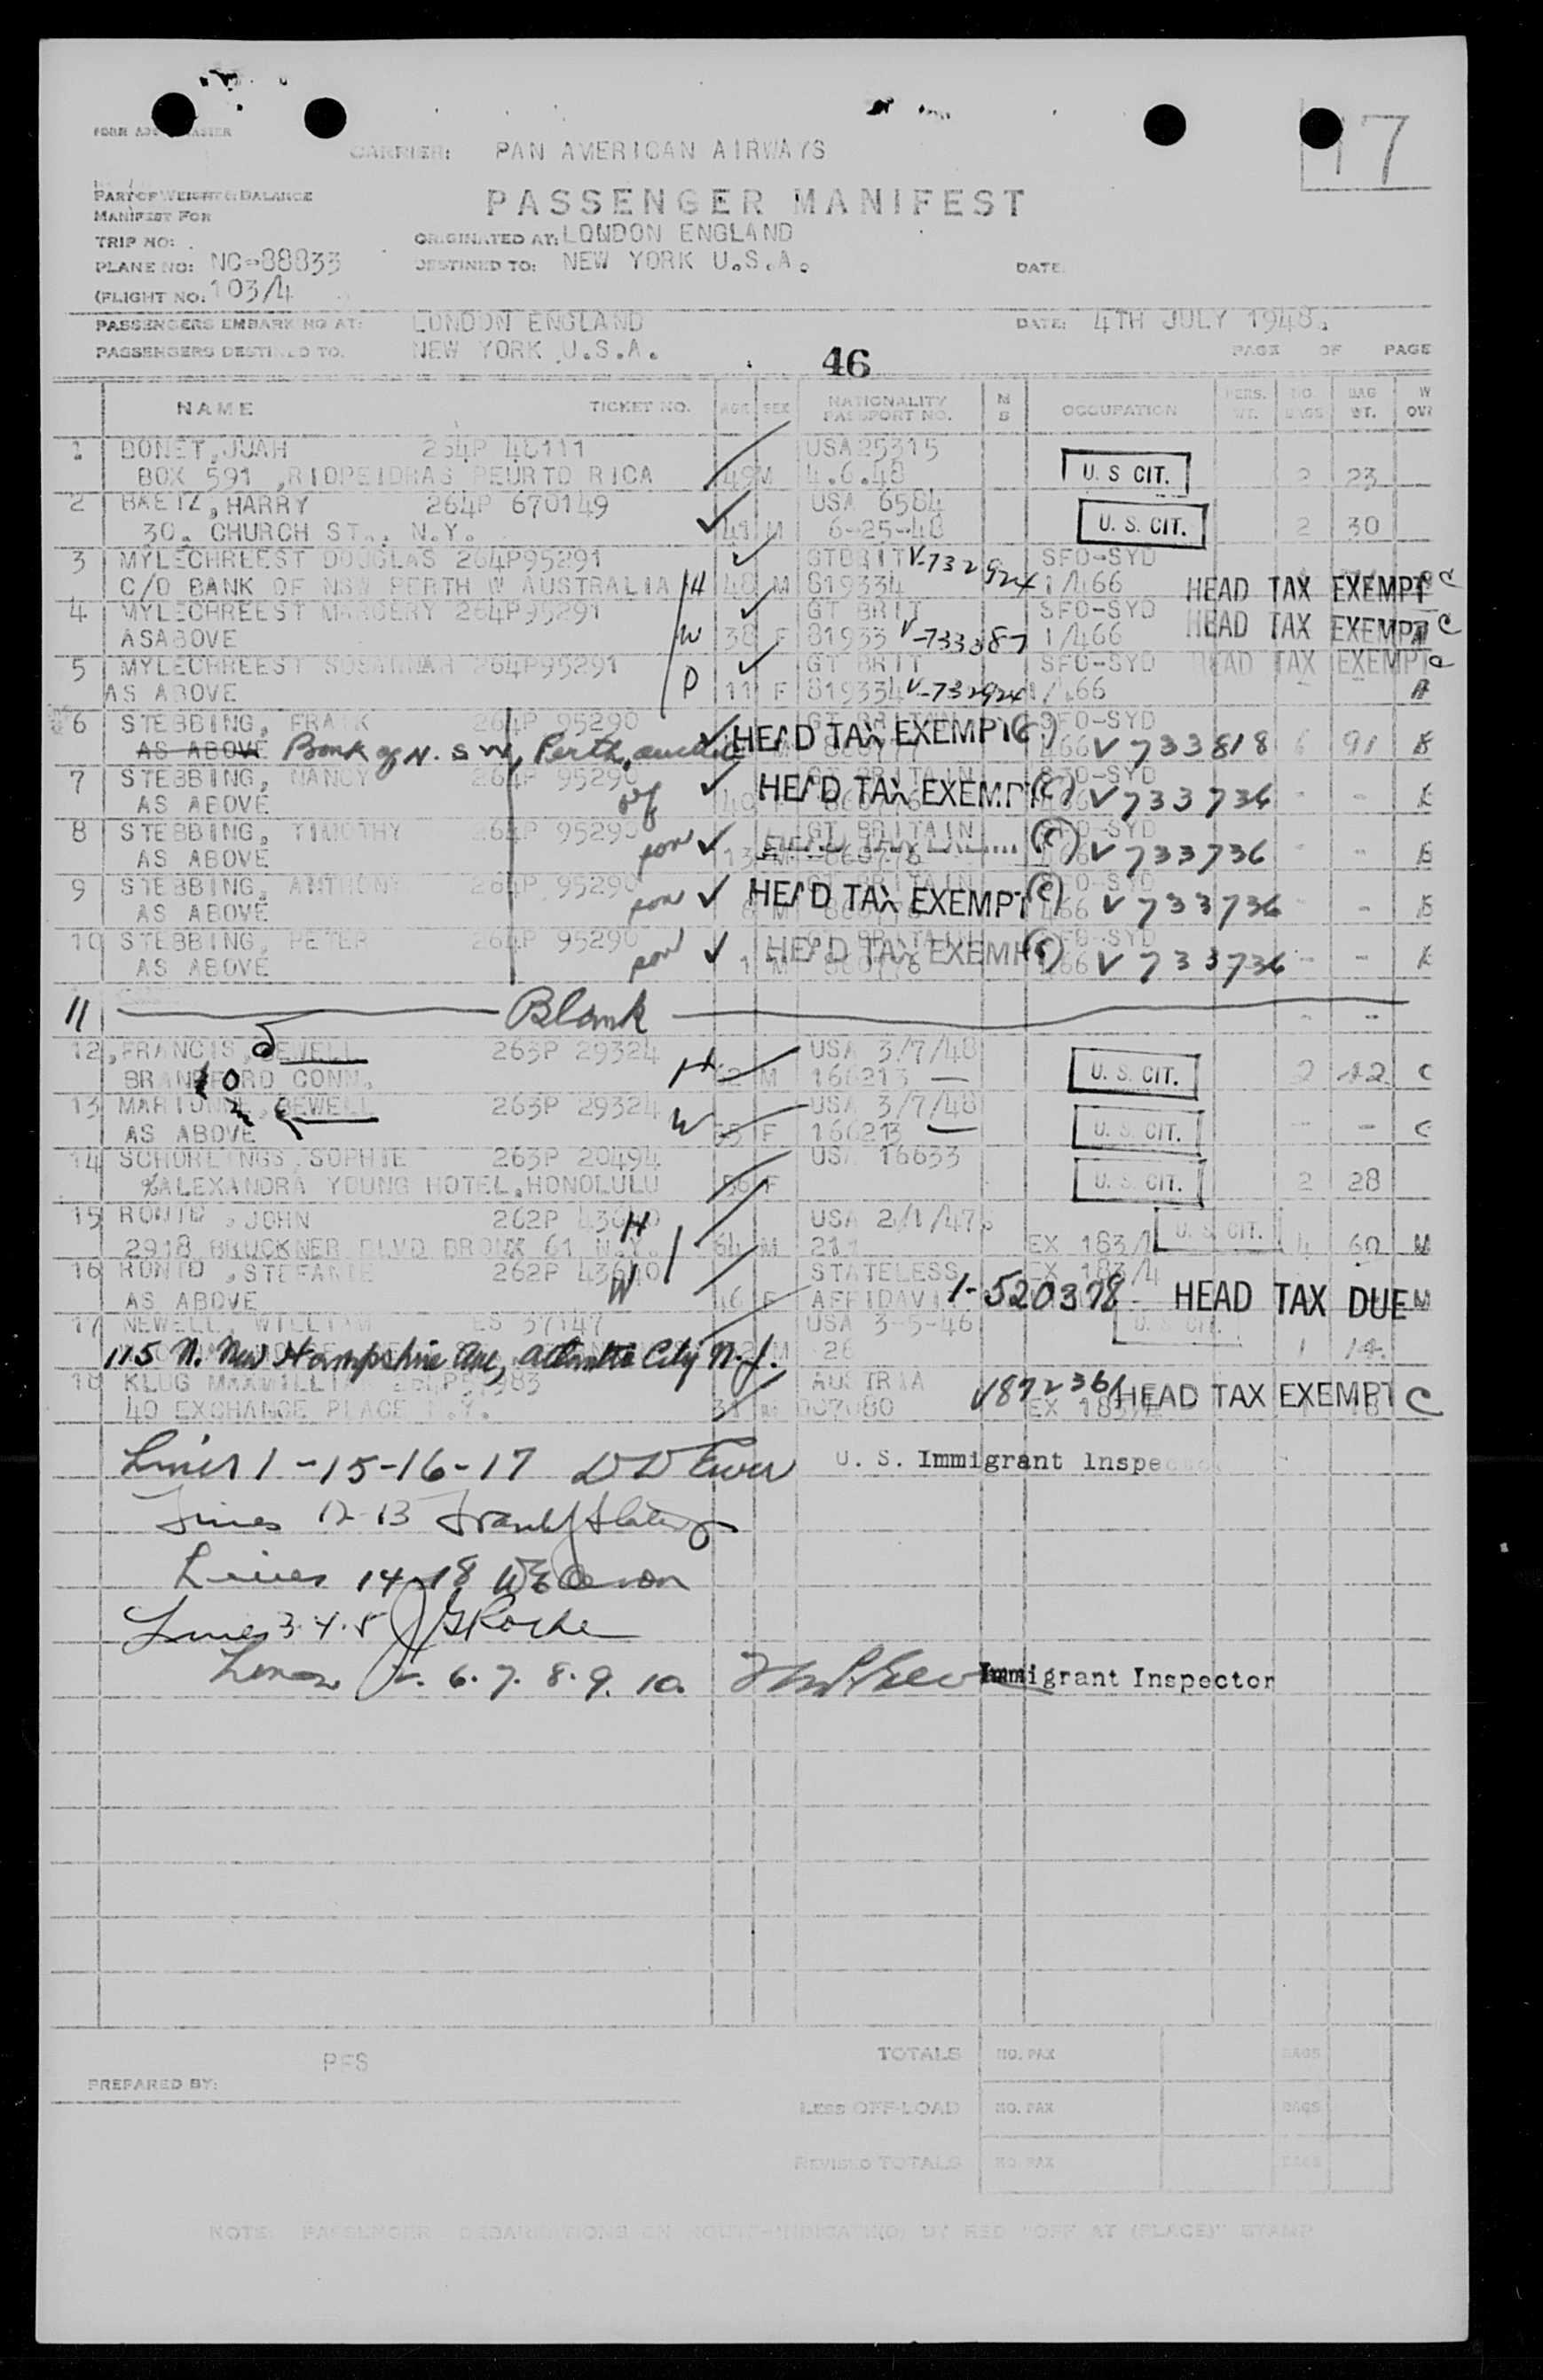 17
CARRIER: PAN AMERICAN AIRWAYS
PART OF WEIGHT & BALANCE
MANIFEST FOR
PASSENGER MANIFEST
TRIP NO:
ORIGINATED AT: LONDON ENGLAND
PLANE NO: NC-88833
DESTINED TO: NEW YORK U.S.A.
DATE:
(FLIGHT NO: 103/4
PASSENGERS EMBARKING AT: LONDON ENGLAND DATE: 4TH JULY 1948.
PASSENGERS DESTINED TO: NEW YORK U.S.A. PAGE OF PAGE
46
NAME TICKET NO. AGE SEX NATIONALITY PASSPORT NO. M S OCCUPATION PERS. WT. NO. BAGS BAG WT. W OVE
1 BONET, JUAH 264P 48111 USA 25315
BOX 591 ,RIOPEIDRAS PEURTO RICA 49 M 4.6.48 U. S CIT. 2 23
2 BAETZ, HARRY 264P 670149 USA 6584
30. CHURCH ST., N.Y. 41 M 6-25-48 U. S. CIT. 2 30
3 MYLECHREEST DOUGLAS 264P95291 GTBRIT V-732924 SFO-SYD
C/O BANK OF NSW PERTH W AUSTRALIA H 48 M 819334 1/466 HEAD TAX EXEMPT C
4 MYLECHREEST MARGERY 264P95291 GT BRIT SFO-SYD
ASABOVE W 38 F 81933 V-733387 1/466 HEAD TAX EXEMPT C
5 MYLECHREEST SUSANNAH 264P95291 GT BRIT SFO-SYD HEAD TAX EXEMPT C
AS ABOVE D 11 F 819334 V-732924 1/466 A
6 STEBBING, FRANK 264P 95290 HEAD TAX EXEMPT (C) SFO-SYD
AS ABOVE Bank of N. S W, Perth, M 466 V 733818 6 91
7 STEBBING, NANCY 264P 95290 HEAD TAX EXEMPT (C) SFO-SYD
AS ABOVE wf 40 V 733736 - -
8 STEBBING, TIMOTHY 264P 95290 GT BRITAIN (C) SFO-SYD
AS ABOVE son 13 M 860776 V 733736 - -
9 STEBBING, ANTHONY 264P 95290 HEAD TAX EXEMPT (C) SFO-SYD
AS ABOVE son M 466 V 733736 - -
10 STEBBING, PETER 264P 95290 HEAD TAX EXEMPT (C) SFO-SYD
AS ABOVE son 1 M 860776 466 V 733736 - -
11 Blank - -
12, FRANCIS, SEWELL 263P 29324 USA 3/7/48
BRANFORD CONN. H 62 M 166213 U. S. CIT. 2 42 C
13 MARIONNE, SEWELL 263P 29324 USA 3/7/48
AS ABOVE W 55 F 166213 U. S. CIT. - - C
14 SCHORLINGS, SOPHIE 263P 20494 USA 16633
%ALEXANDRA YOUNG HOTEL, HONOLULU 56 F U. S. CIT. 2 28
15 RONID , JOHN 262P 43640 H USA 2/1/47
2918 BRUCKNER BLVD BRONX 61 N.Y. 64 M 211 EX 183/4 U. S. CIT. 4 60 M
16 RONID , STEFANIE 262P 43640 STATELESS EX 183/4
AS ABOVE W 46 F AFFIDAVIT 1-520378 HEAD TAX DUE M
17 NEWELL, WILLIAM ES 37147 USA 3-5-46 U. S. CIT.
115 N. New Hampshire Ave, Atlantic City N.J. M 26 1 14
18 KLUG MAXMILLIAN AUSTRIA V872361 HEAD TAX EXEMPT C
40 EXCHANGE PLACE N.Y. 31 M 007080 EX 183/4
Lines 1-15-16-17 U. S. Immigrant Inspector
Lines 12-13 Frank J Slattery
Lines 14-18
Lines 3.4.5 J G Roche
Lines 2. 6. 7. 8. 9. 10. Immigrant Inspector
PFS
PREPARED BY:
TOTALS NO. PAX BAGS
LESS OFF-LOAD NO. PAX BAGS
REVISED TOTALS NO. PAX BAGS
NOTE: PASSENGER DEBARKATIONS EN ROUTE INDICATED BY RED "OFF AT (PLACE)" STAMP